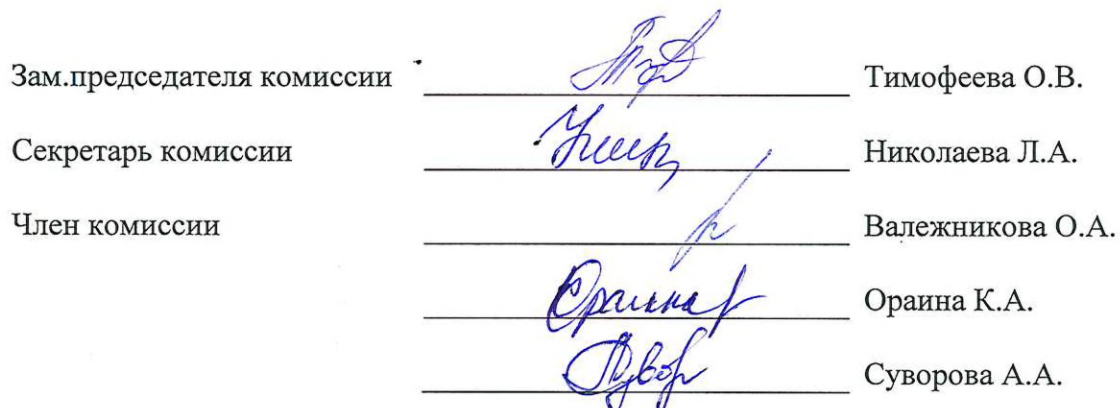 Зам.председателя комиссии Тимофеева О.В.
Секретарь комиссии Николаева Л.А.
Член комиссии Валежникова О.А.
Ораина К.А.
Суворова А.А.